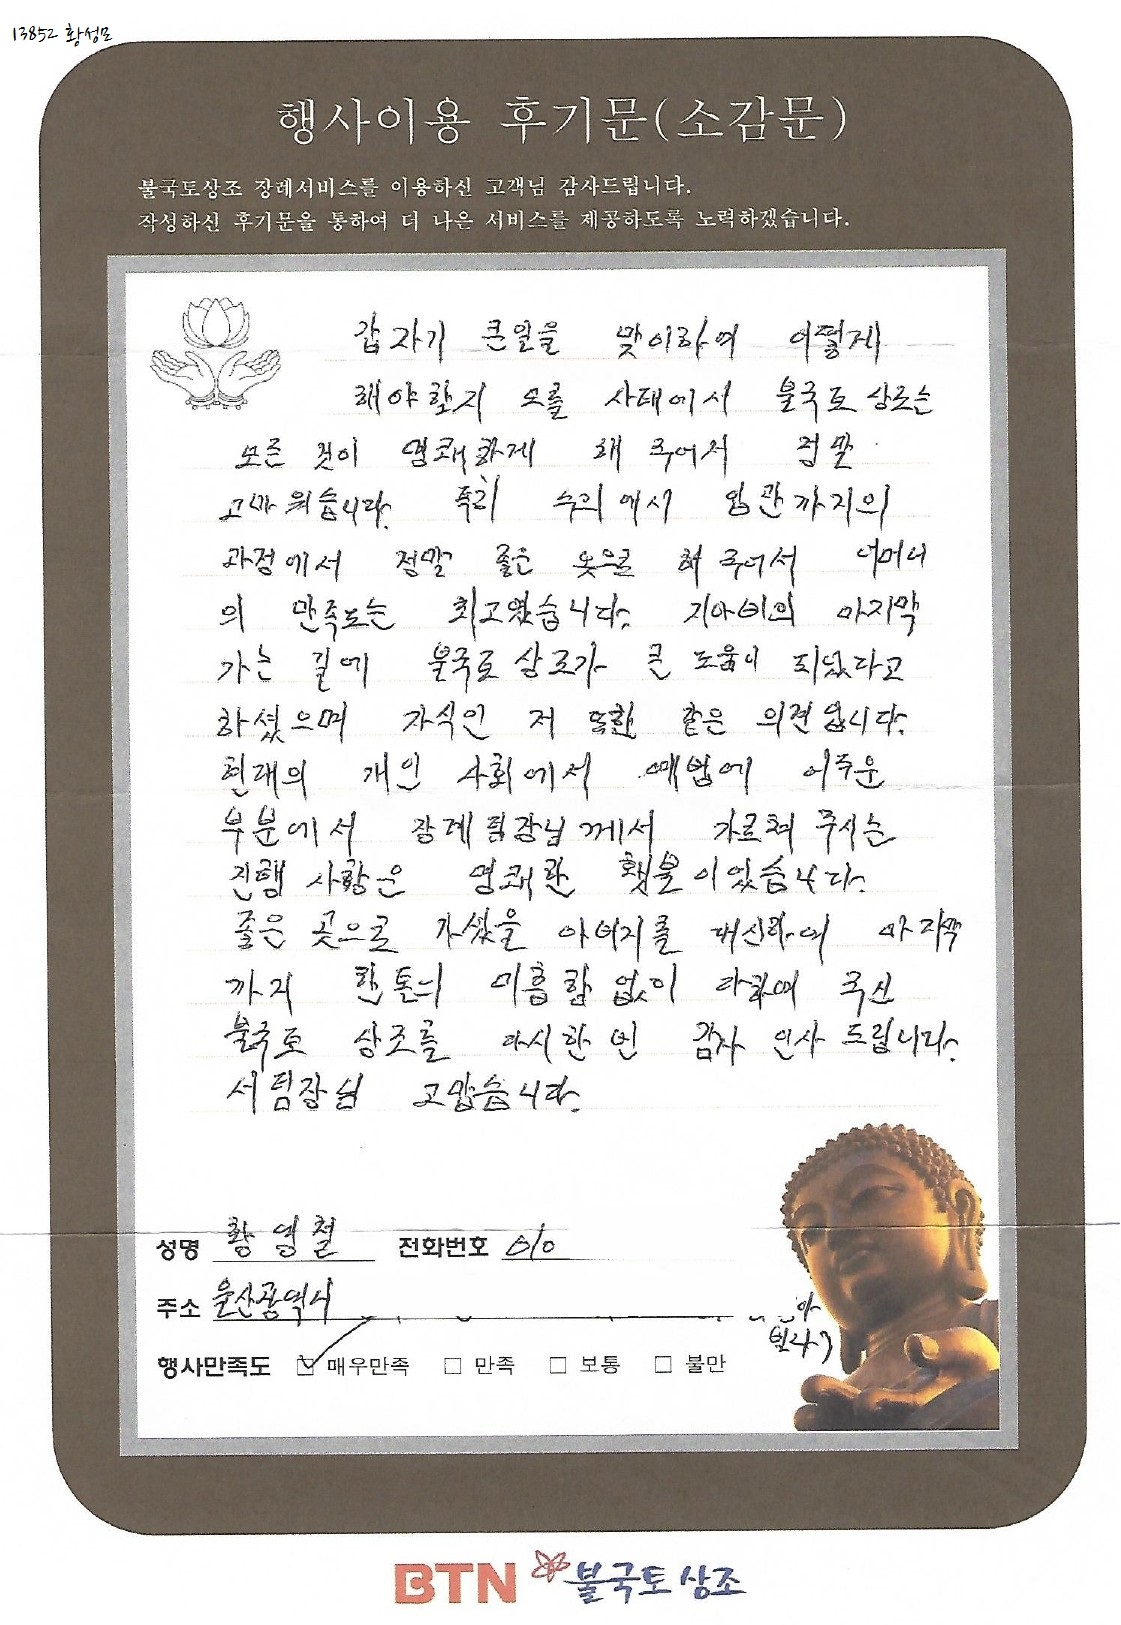 13852 황성모
행사이용 후기문(소감문)
불국토상조 장례서비스를 이용하신 고객님 감사드립니다.
작성하신 후기문을 통하여 더 나은 서비스를 제공하도록 노력하겠습니다.
갑자기 큰일을 맞이하여 어떻게
해야할지 모를 사태에서 불국토 상조는
모든 것이 명쾌하게 해 주어서 정말
고마웠습니다. 특히 수의에서 입관까지의
과정에서 정말 좋은 옷으로 해 주어서 어머니
의 만족도는 최고였습니다. 지아비의 마지막
가는 길에 불국토 상조가 큰 도움이 되었다고
하셨으며 자식인 저 또한 같은 의견입니다.
현대의 개인 사회에서 예법에 어두운
부분에서 장례팀장님께서 가르쳐 주시는
진행 사항은 명쾌한 횃불이었습니다.
좋은 곳으로 가셨을 아버지를 대신하여 마지막
까지 한톨의 미흡함없이 다하여 주신
불국토 상조를 다시한번 감사 인사 드립니다.
서팀장님 고맙습니다.
성명 황영철 전화번호 010
주소 울산광역시
행사만족도 매우만족 만족 보통 불만
BTN 불국토상조